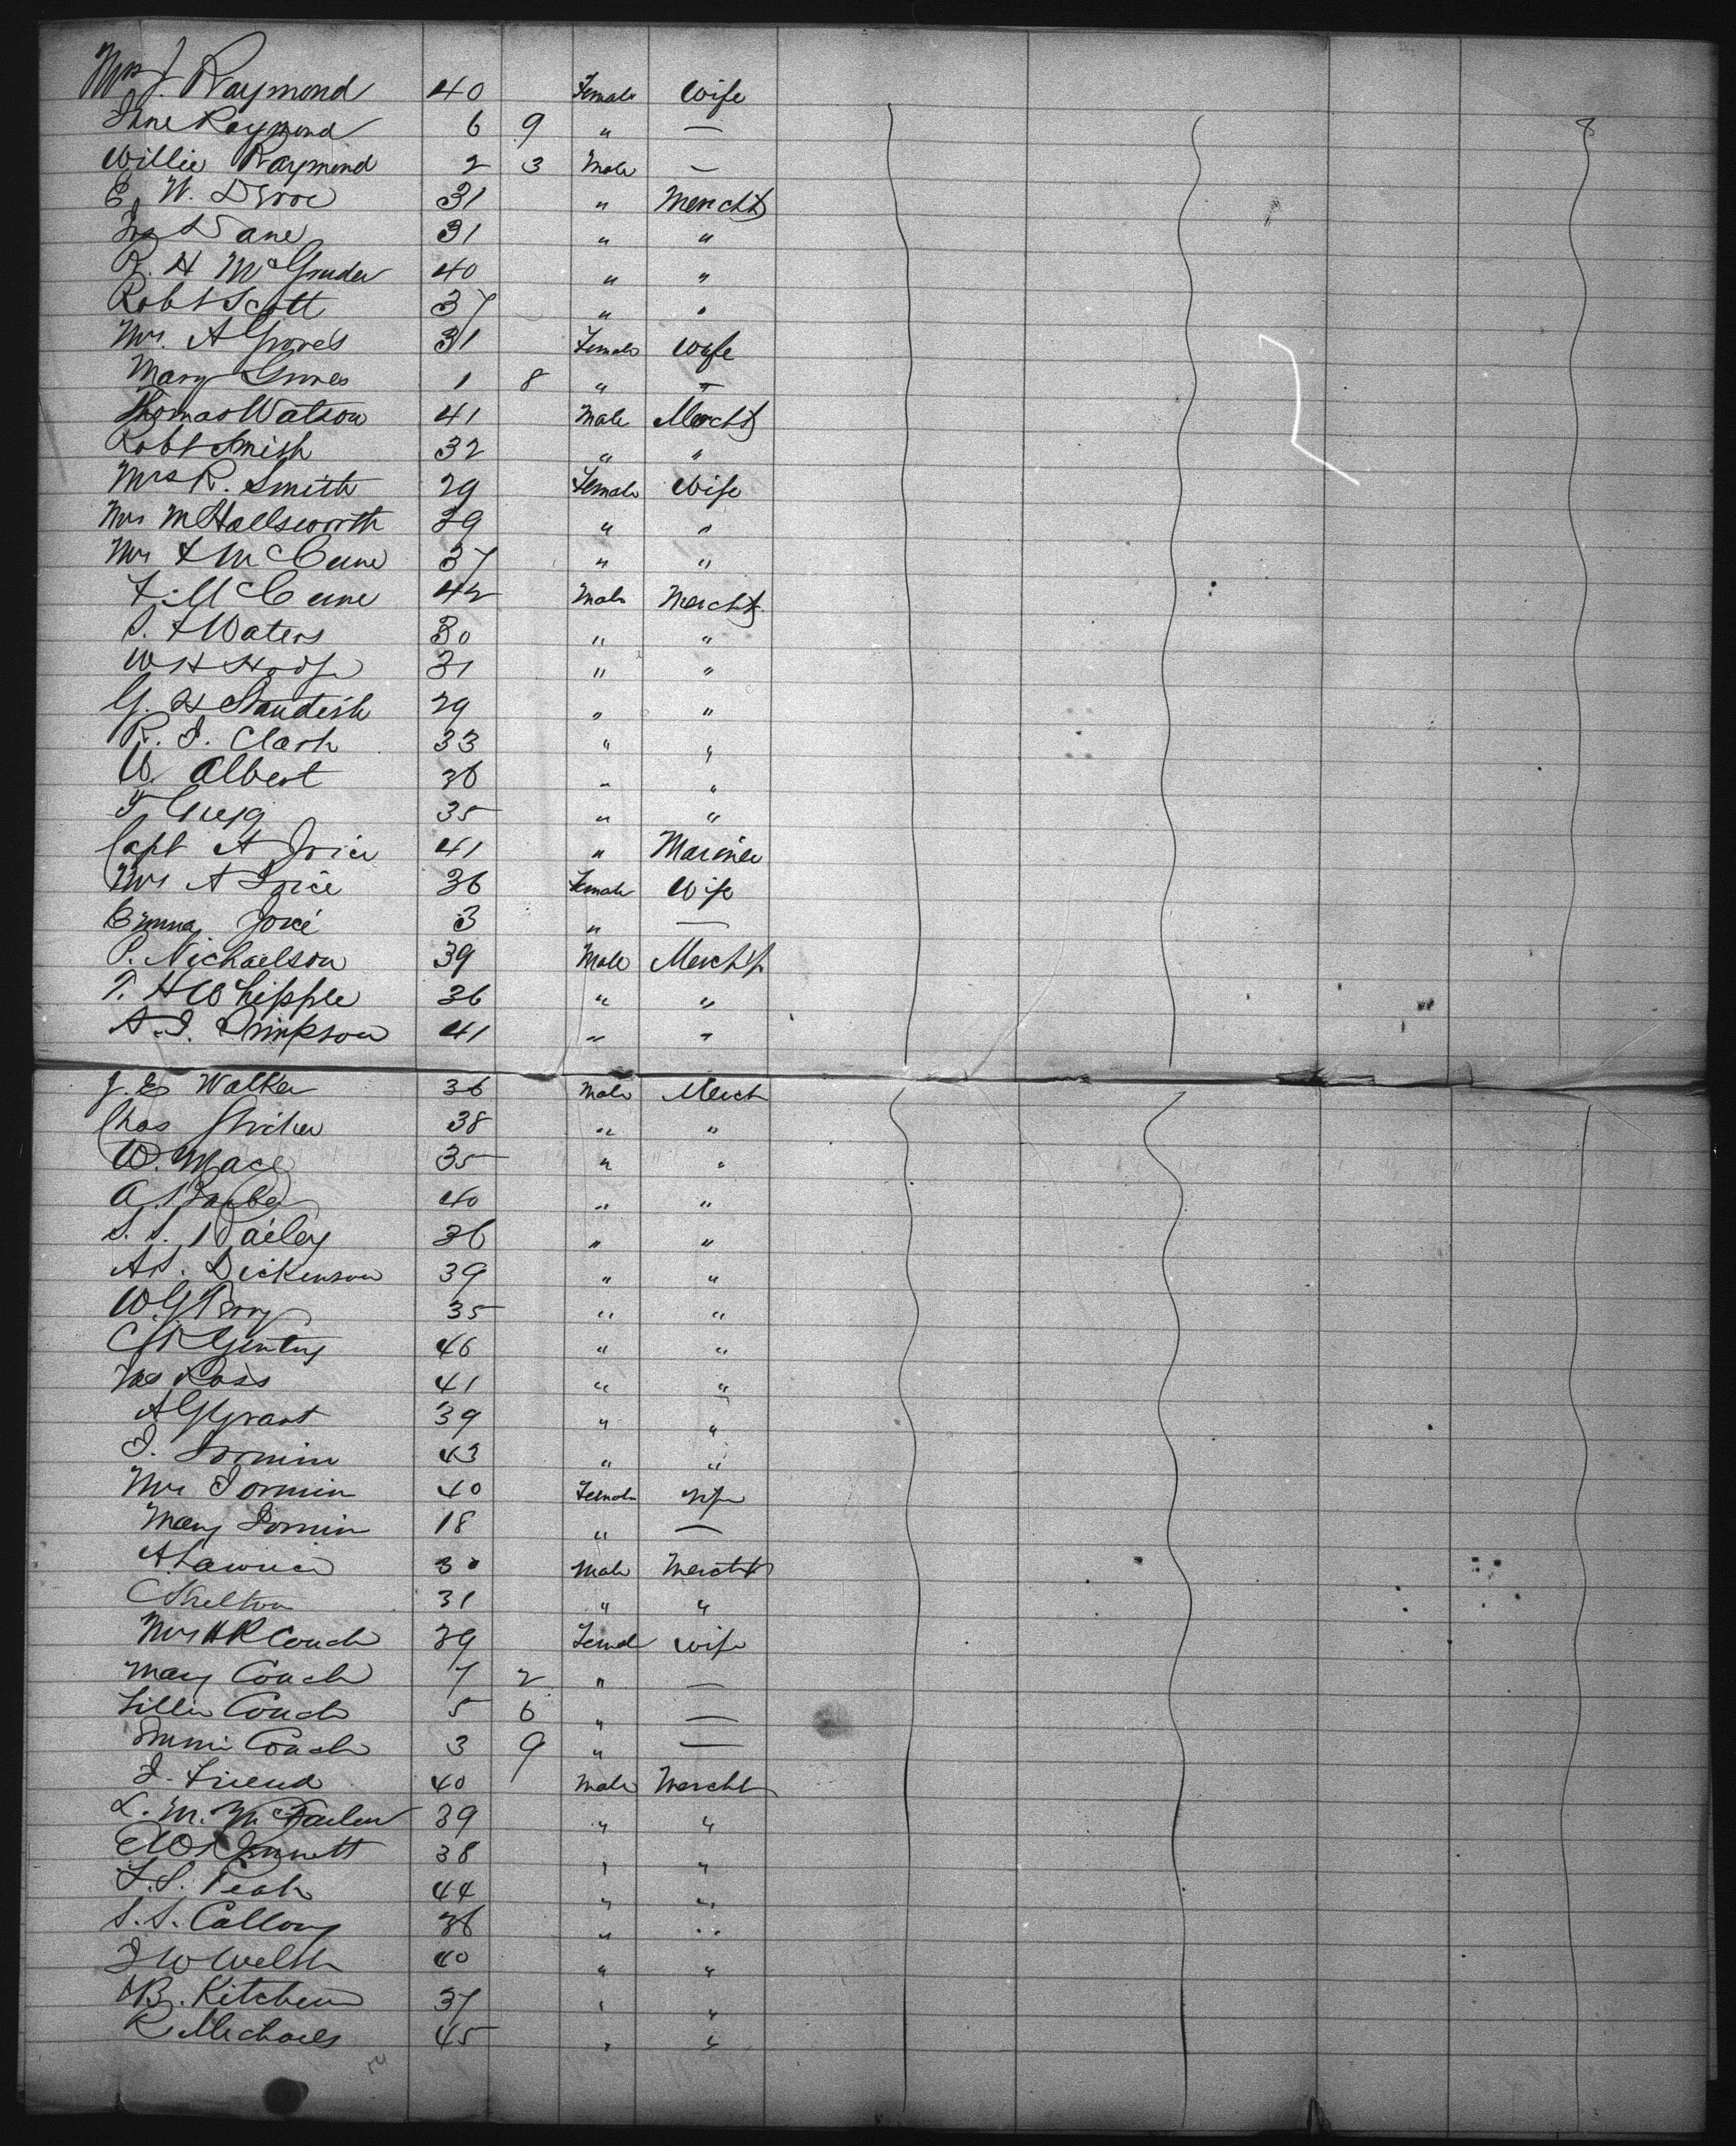 Mrs J. Raymond 40 Female Wife
Jane Raymond 6 9 " —
Willie Raymond 2 3 Male —
E. W. 31 " Mercht
Jas Dane 31 " "
R. H McGruder 40 " "
Robt Scott 37 " "
Mrs. A Groves 31 Female Wife
Mary Groves 1 8 " —
Thomas Watson 41 Male Mercht
Robt Smith 32 " "
Mrs R. Smith 29 Female Wife
Mrs M Hallsworth 29 " "
Mrs F McCune 37 " "
F. McCune 42 Male Mercht
S. F Waters 30 " "
W H Hodge 31 " "
G. H Standish 29 " "
R. J. Clark 33 " "
W. Albert 36 " "
T. Gregg 35 " "
Capt A Joice 41 " Mariner
Mrs A Joice 36 Female Wife
Emma Joice 3 " —
P. Nichaelson 39 Male Mercht
T. H Whipple 36 " "
A. J. Simpson 41 " "
J. E Walker 36 Male Merch
Chas 38 " "
W. Mace 35 " "
A. Barber 40 " "
S. S. Bailey 36 " "
A S. Dickenson 39 " "
W. G Perry 35 " "
C R Gentry 46 " "
Jas Ross 41 " "
A G Grant 39 " "
J. Dormin 43 " "
Mrs Dormin 40 Female Wife
Mary Dormin 18 " —
A Lawrie 30 Male Mercht
C Shelton 31 " "
Mrs H R Couch 39 Femal Wife
Mary Couch 7 2 " —
Lillie Couch 5 6 " —
Couch 3 9 " —
J. Friend 40 Male Mercht
L. M. McFaden 39 " "
E W Bennett 38 " "
F. S. Peak 44 " "
S. S. 36 " "
J W Welsh 40 " "
B. Kitchen 37 " "
R Michaels 45 " "